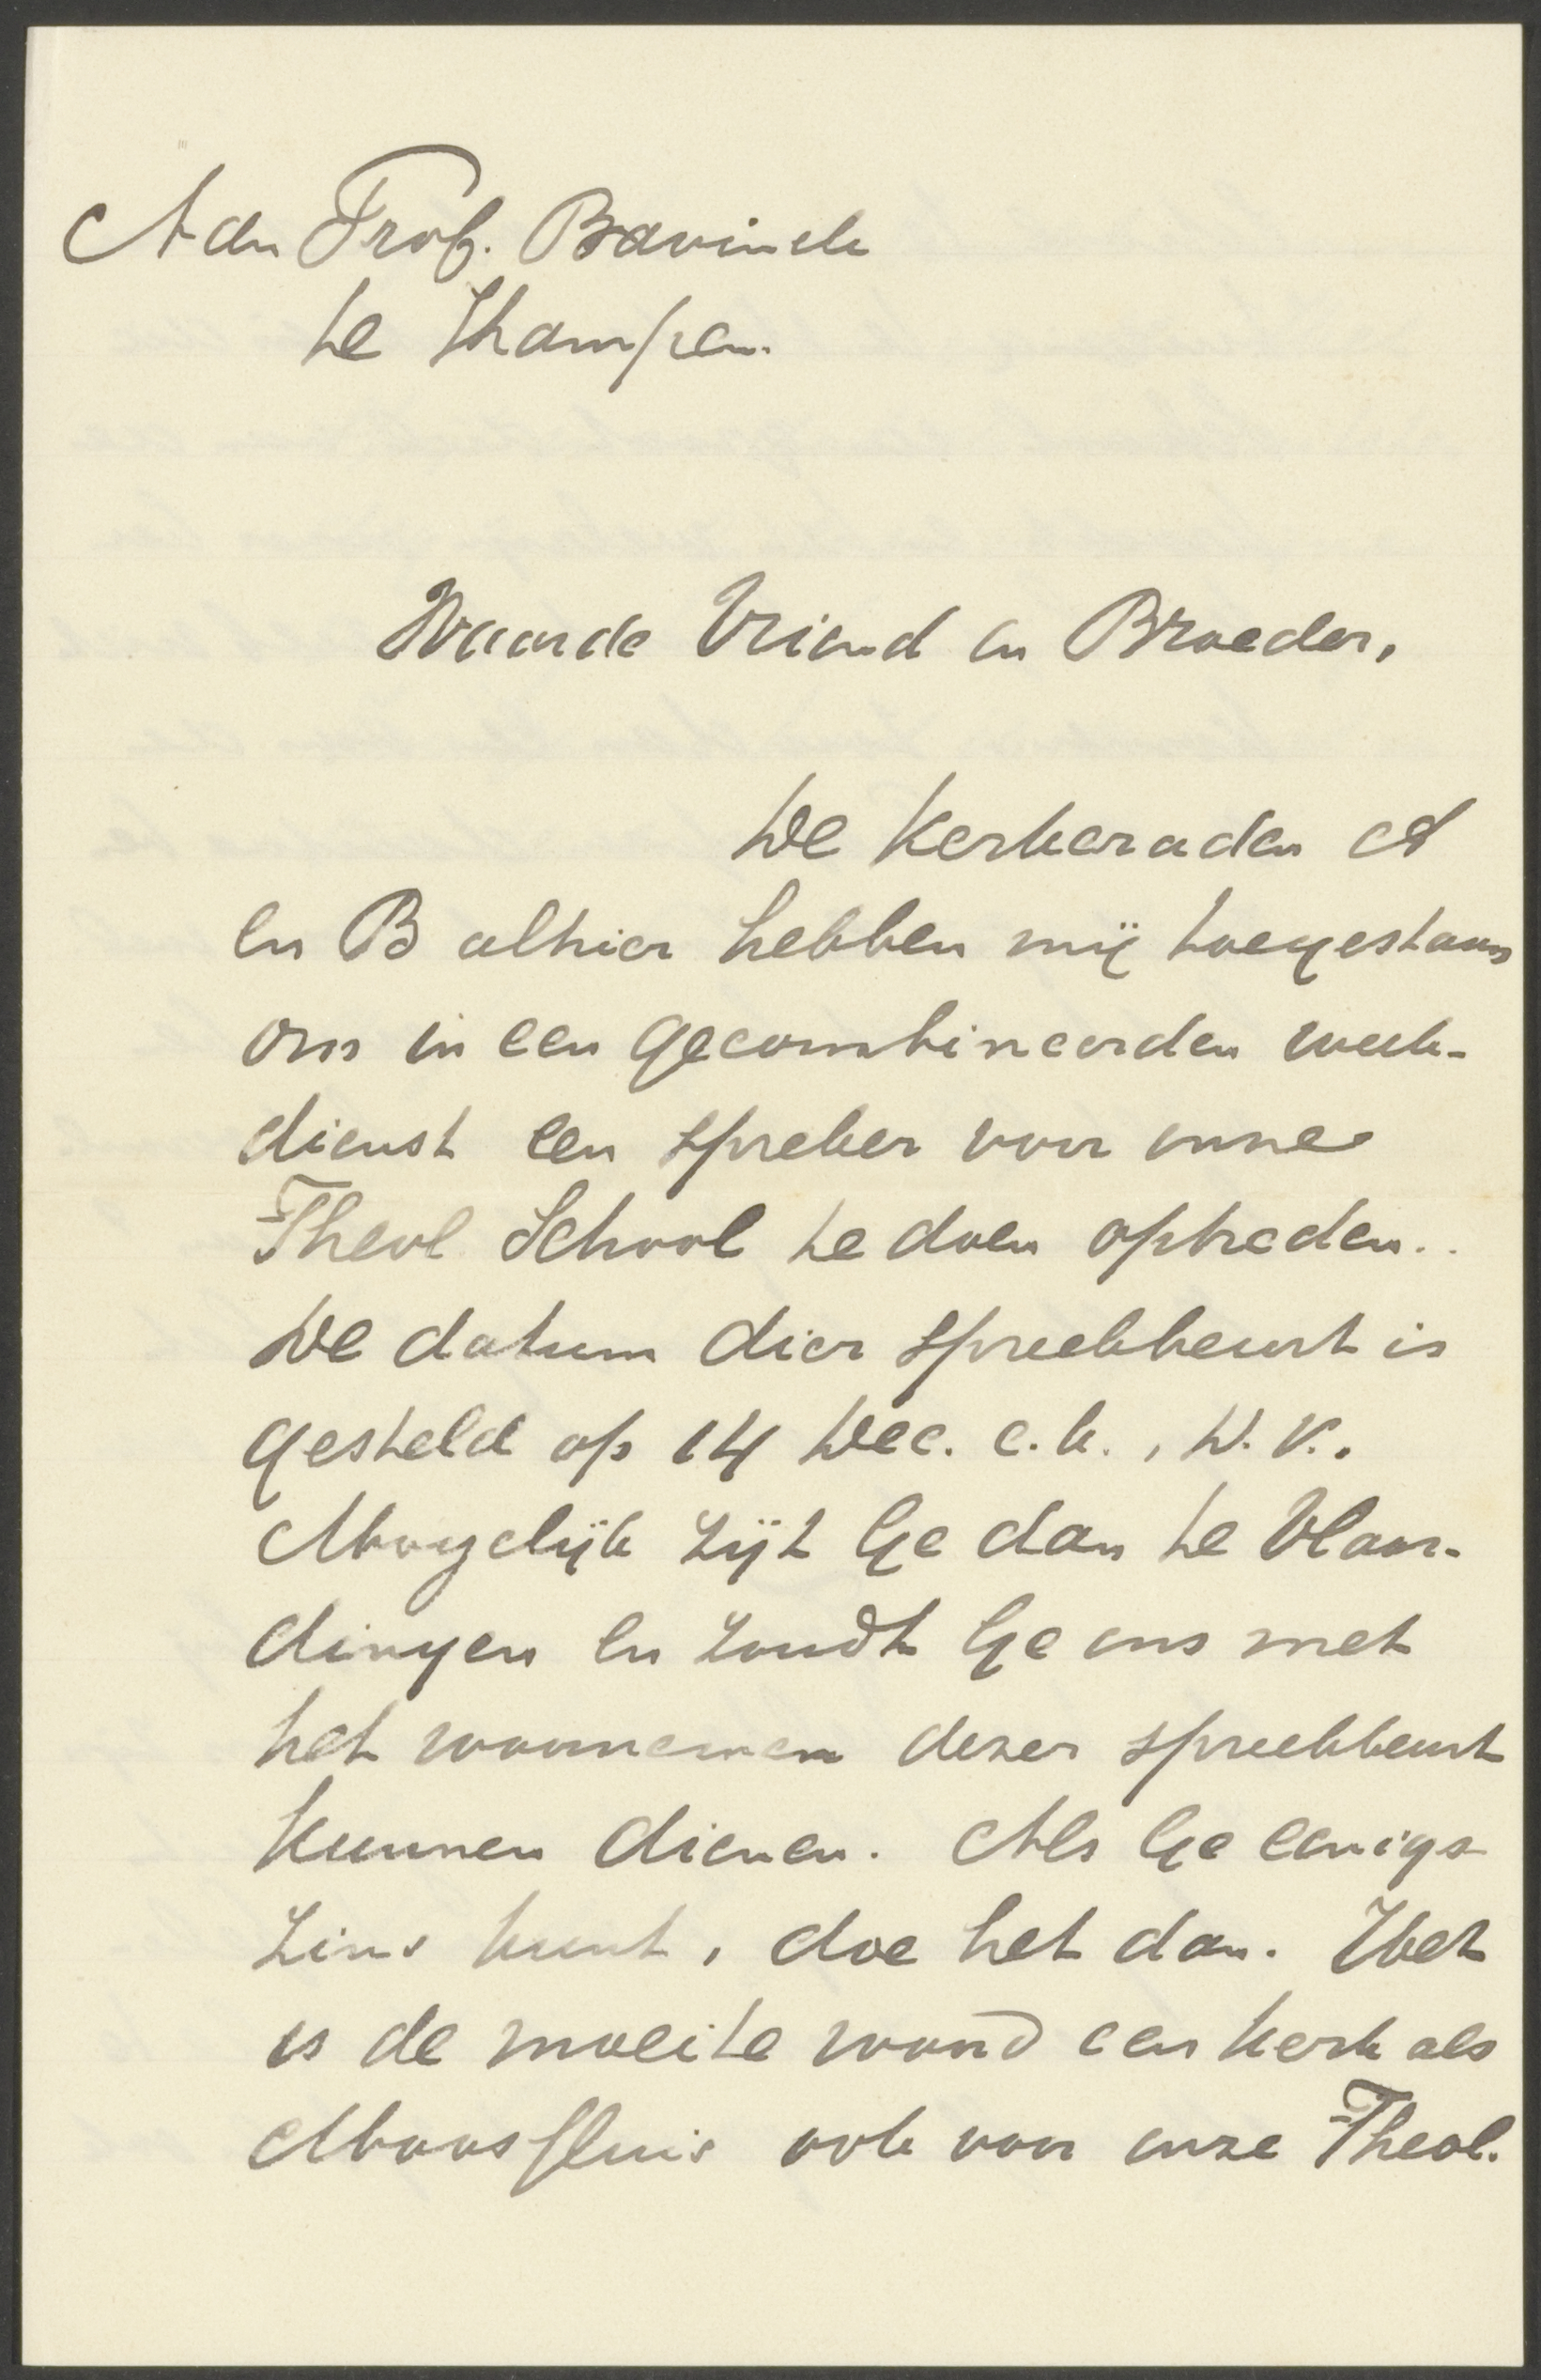 Aan Prof. Bavinck
te Kampen.
Waarde Vriend en Broeder,
De Kerkeraden A
en B alhier hebben mij toegestaan
om in een gecombineerden week-
dienst een spreker voor onze
Theol School te doen optreden..
De datum dier spreekbeurt is
gesteld op 14 Dec. e.k., D.V.
Mogelijk zijt Ge dan te Vlaar-
dingen en zoudt Ge ons met
het waarnemen dezer spreekbeurt
kunnen dienen. Als Ge eenigs-
zins kunt, doe het dan. Het
is de moeite waard een kerk als
Maassluis ook voor onze Theol.